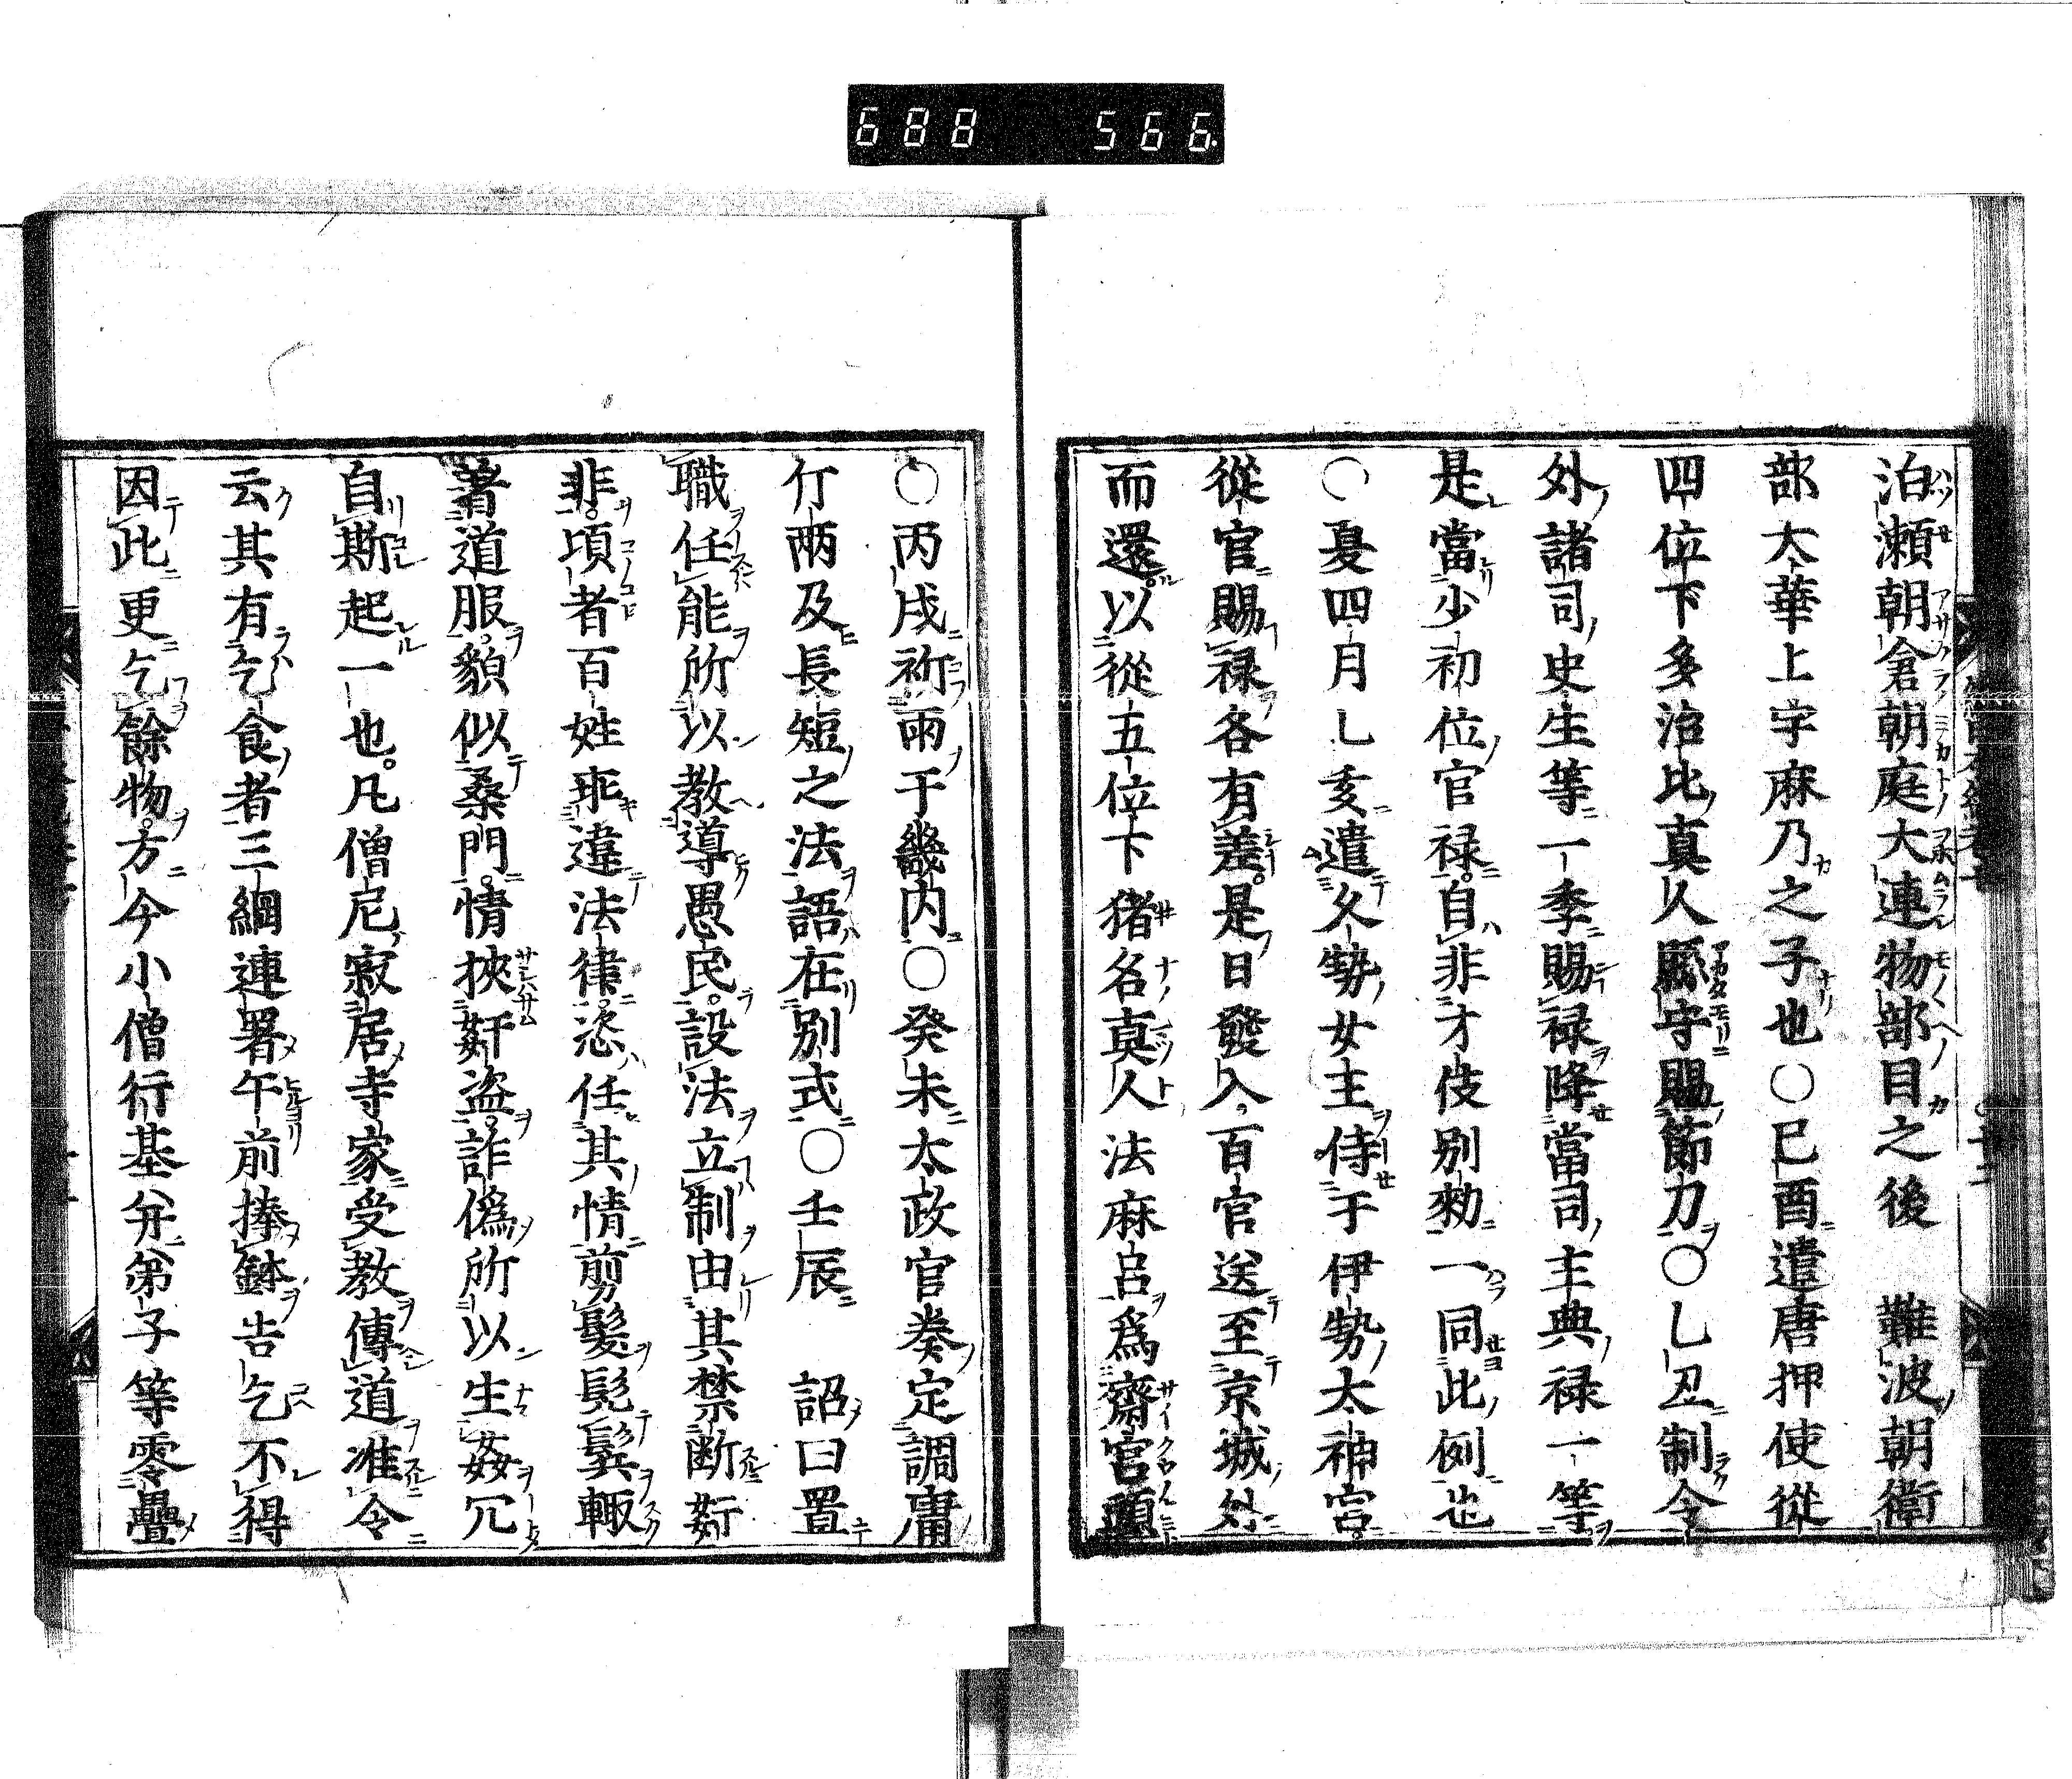 688 566
泊瀬朝倉朝庭大連物部目之後 難波朝衛
部大華上宇麻乃之子也〇已酉遣唐押使從
四位下多治比真人縣守賜節刀〇乚丑制令
外諸司史生等一季賜禄降當司主典禄一等
是當少初位官禄自非才伎别勑一同此例也
〇夏四月乚亥遣久勢女主侍于伊勢太神宮
從官賜禄各有差是日發入百官送至京城外
而還以從五位下猪名真人法麻呂爲齋宮頭
〇丙戌祈雨于畿内〇癸未太政官奏定調庸
斤兩及長短之法語在别式〇壬辰 詔曰置
職任能所以教導愚民設法立制由其禁断姧
非頃者百姓乖違法律恣任其情剪髮髠鬢輙
著道服貌似桑門情挾姧盗詐僞所以生姦宄
自斯起一也凡僧尼寂居寺家受教傳道准令
云其有乞食者三綱連署午前捧鉢告乞不得
因此更乞餘物方今小僧行基并弟子等零疊